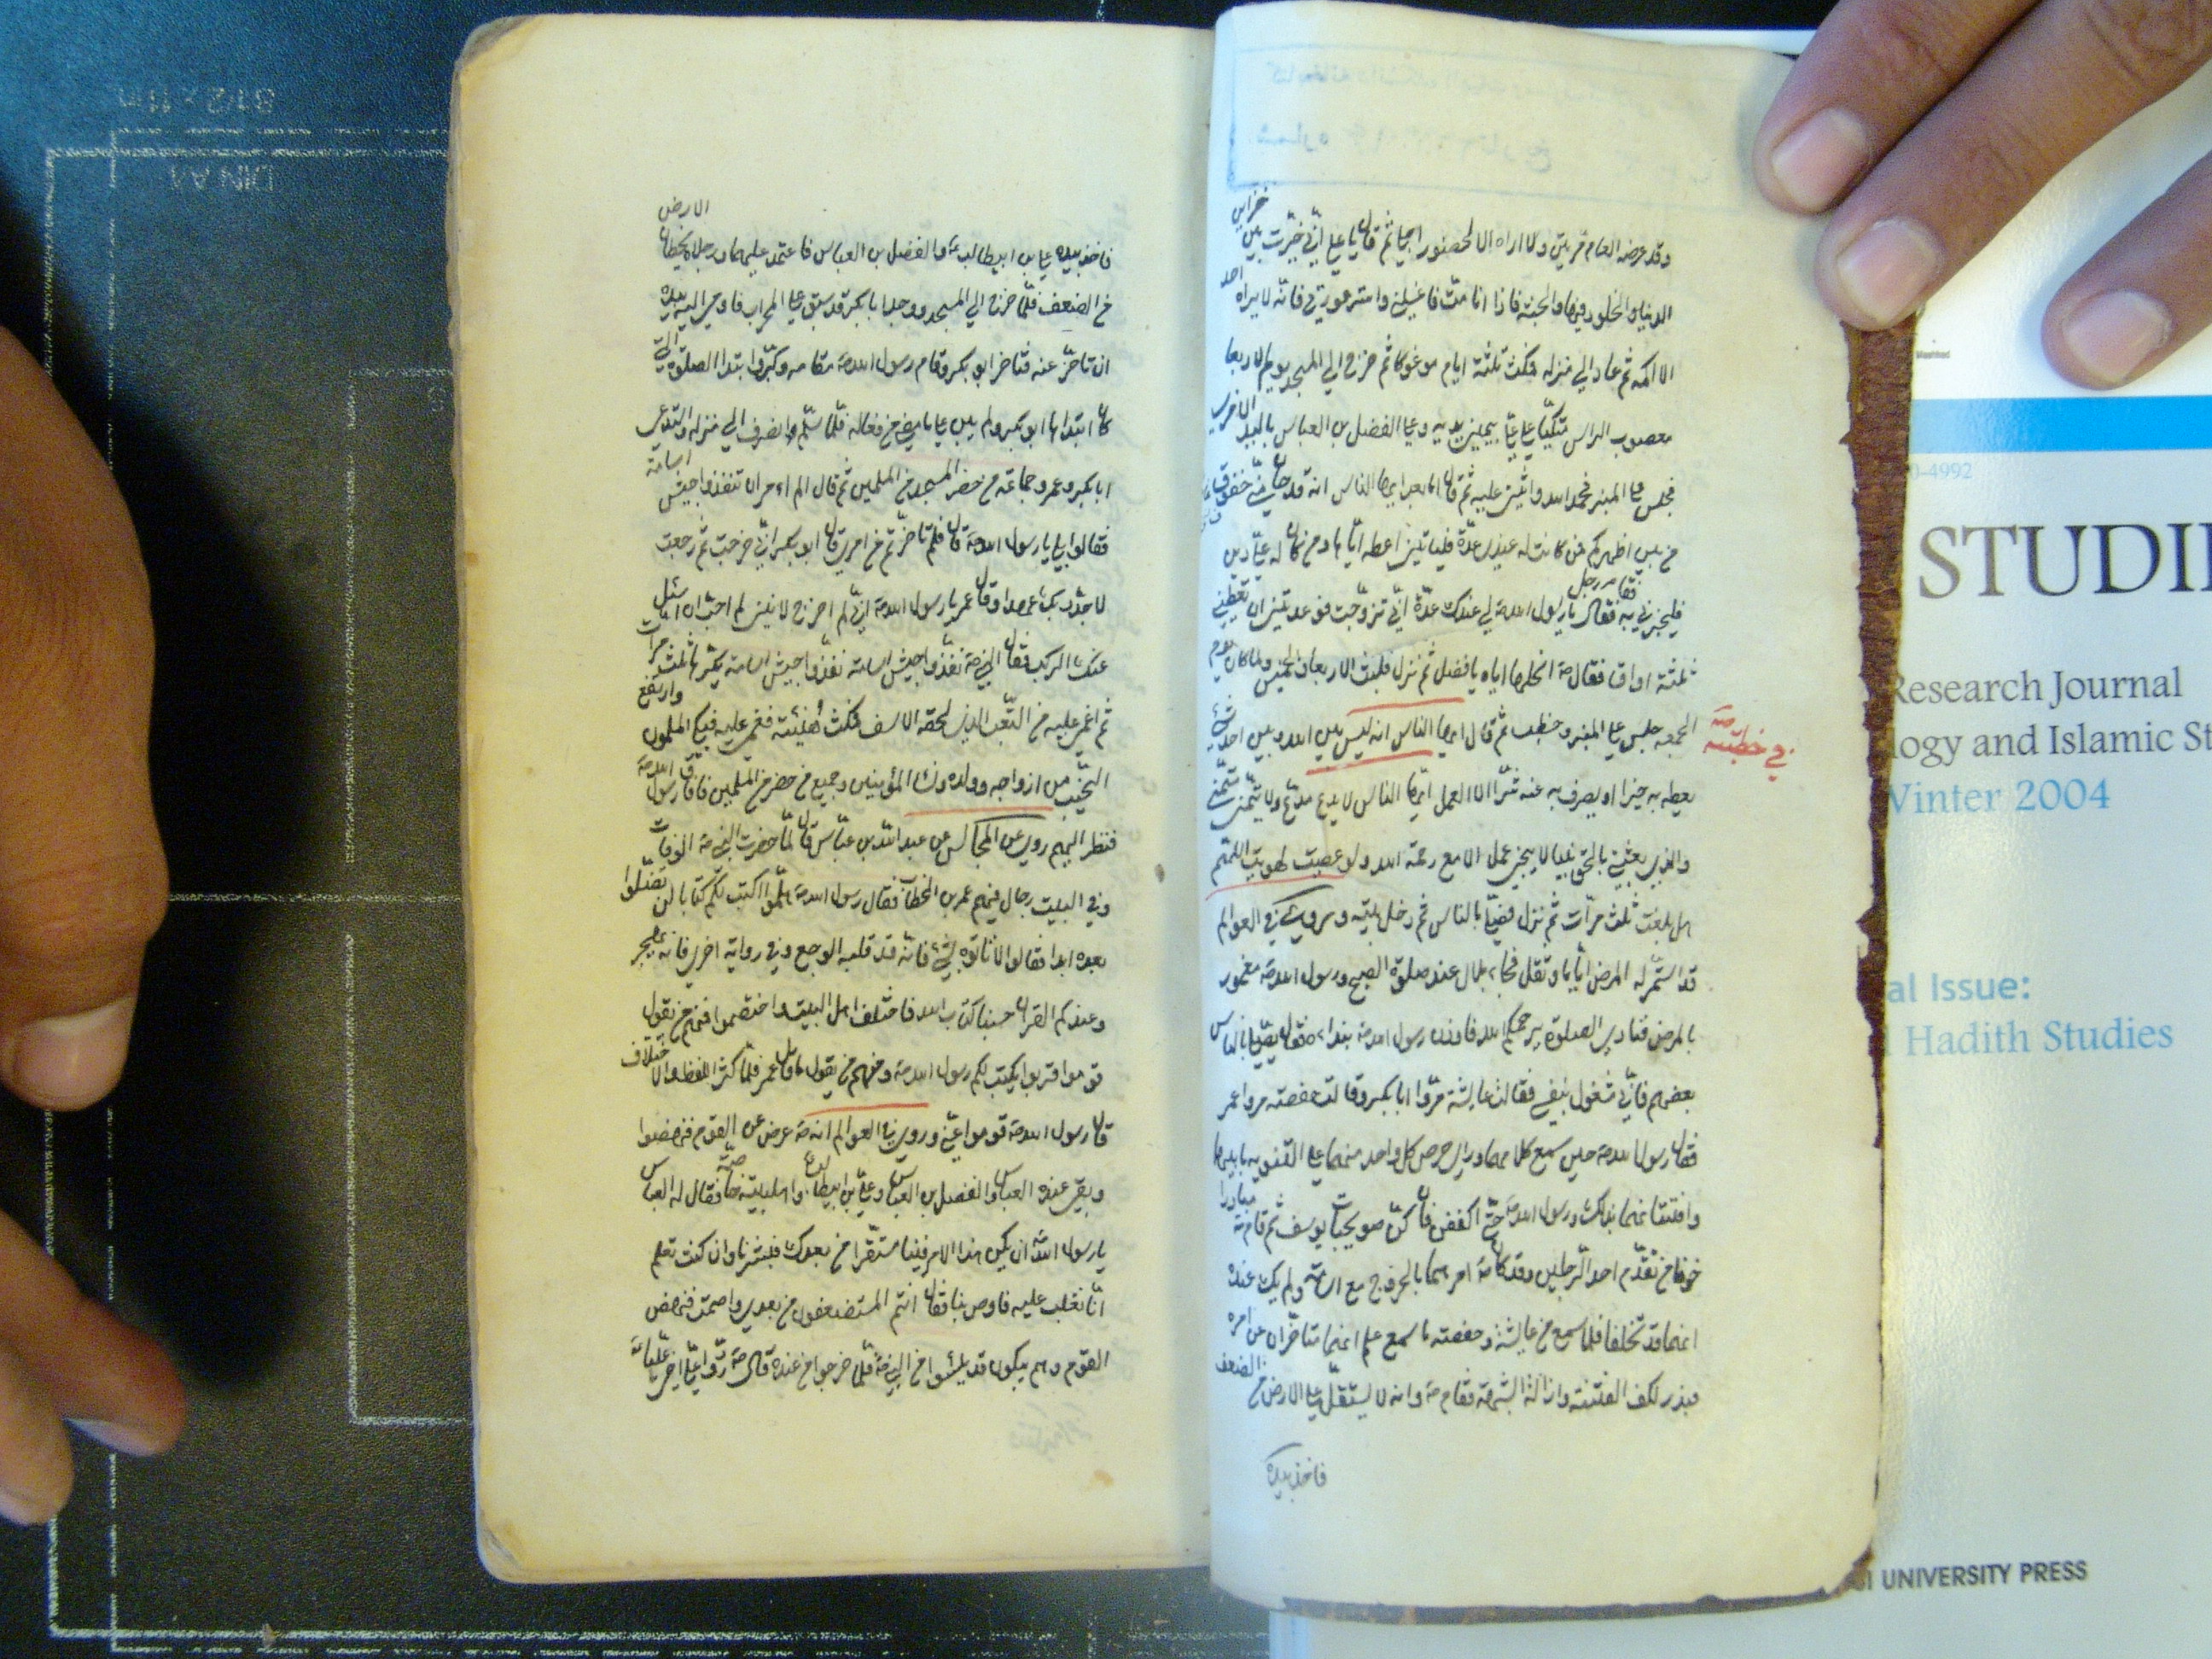 وقد عرضه العام مرتين ولا اراه الا لحضور اجلي ثم قال يا علي اني خيرت بين خزاين
الدنيا والخلود فيها والجنة فاذا انا مت فاغسلني واستر عورتي فانه لا يراه احد
الا اكمه ثم عاد الي منزله فمكث ثلثة ايام موعوكا ثم خرج الي المسجد يوم الاربعا
معصوب الراس متكيا علي علي بيمين يديه وعلي الفضل بن العباس باليد الاخري
فجلس علي المنبر فحمد الله واثني عليه ثم قال اما بعد ايها الناس انه قد حان مني خفوق
من بين اظهركم فمن كانت له عندي عدة فلياتني اعطه اياها ومن كان له علي دين
فليخبرني به فقام رجل فقال يا رسول الله ص لي عندك عدة اني تزوجت فوعدتني ان تعطيني
ثلثة اواق فقال ص انحلها اياه يا فضل ثم نزل فلبث الاربعا والخميس ولما كان يوم
الجمعه جلس علي المنبر وخطب ثم قال ايها الناس انه ليس بين الله وبين احد شيء
في خطبته ص
يعطيه به خيرا او يصرف به عنه شرا الا العمل ايها الناس لا يدع مدع ولا يتمن متمن
والذي بعثني بالحق نبيا لا ينجي عمل الا مع رحمة الله ولو عصيت لهويت اللهم
هل بلغت ثلث مرات ثم نزل فصلي بالناس ثم دخل بيته وروي في العوالم
قد استمر له المرض اياما وثقل فجاء بلال عند صلوة الصبح ورسول الله ص مغمور
بالمرض فنادي الصلوة يرحمكم الله فاوذن رسول الله ص بنداءه فقال يصلي بالناس
بعضهم فاني مشغول بنفسي فقالت عايشة مروا ابا بكر وقالت حفصة مروا عمر
فقال رسول الله ص حين سمع كلامهما وراي حرص كل واحد منهما علي التنويه بابيها
وافتتانهما بذلك ورسول الله ص حي اكففن فان كن صويحبات يوسف ثم قام ص مبادرا
خوفا من تقدم احد الرجلين وقد كان ص امرهما بالخروج مع اسامة ولم يك عنده
انهما قد تخلفا فلما سمع من عايشة وحفصة ما سمع علم انهما متاخران عن امره
فبدر لكف الفتنة وازالة الشبهة فقام ص وانه لا يستقل علي الارض من الضعف
فاخذ بيده
فاخذ بيده علي بن ابيطالب ع والفضل بن العباس فاعتمد عليهما ورجلاه يخطان الارض
من الضعف فلما خرج الي المسجد ووجد ابا بكر قد سبق علي المحراب فاومي اليه بيده
ان تاخر عنه فتاخر ابو بكر وقام رسول الله ص مقامه وكبر وابتدا الصلوة التي
كان ابتداها ابو بكر ولم يبن علي ما مضي من فعاله فلما سلم وانصرف الي منزله واستدعي
ابا بكر وعمر وجماعة من حضر المسجد من المسلمين ثم قال الم اءمر ان تنفذوا جيش اسامة
فقالوا بلي يا رسول الله ص قال فلم تاخرتم عن امري قال ابو بكر اني خرجت ثم رجعت
لاجدد بك عهدا وقال عمر يا رسول الله ص اني لم اخرج لانني لم احب ان اسئل
عنك الركب فقال النبي ص نفذوا جيش اسامة نفذوا جيش اسامة يكررها ثلث مرات
ثم اغمي عليه من التعب الذي لحقه والاسف فمكث هنيئة فغمي عليه فبكي المسلمون وارتفع
النحيب من ازواجه وولده ونساء المؤمنين وجميع من حضر من المسلمين فافاق رسول الله ص
فنظر اليهم روي عن المجالس عن عبد الله بن عباس قال لما حضرت النبي ص الوفات
وفي البيت رجال فيهم عمر بن الخطاب فقال رسول الله ص هلموا اكتب لكم كتابا لن تضلوا
بعده ابدا فقالوا لا تاتوه بشيء فانه قد غلبه الوجع وفي رواية اخري فانه ليهجر
وعندكم القران حسبنا كتاب الله فاختلف اهل البيت واختصموا فمنهم من يقول
قوموا قربوا يكتب لكم رسول الله ص ومنهم من يقول ما قال عمر فلما كثر اللغط والاختلاف
قال رسول الله ص قوموا عني وروي في العوالم انه ص عرض عن القوم فنهضوا
وبقي عنده العباس والفضل بن العباس وعلي بن ابيطالب ع واهلبيته خاصة فقال له العباس
يا رسول الله ان يكن هذا الامر فينا مستقرا من بعدك فبشرنا وان كنت تعلم
انا نغلب عليه فاوص بنا فقال انتم المستضعفون من بعدي واصمت فنهض
القوم وهم يبكون قد يئسوا من النبي ص فلما خرجوا من عنده قال ص ردوا علي اخي
DIN A4
8 1/2 x 11 in
STUDI
Research Journal
logy and Islamic St
Winter 2004
al Issue:
Hadith Studies
UNIVERSITY PRESS